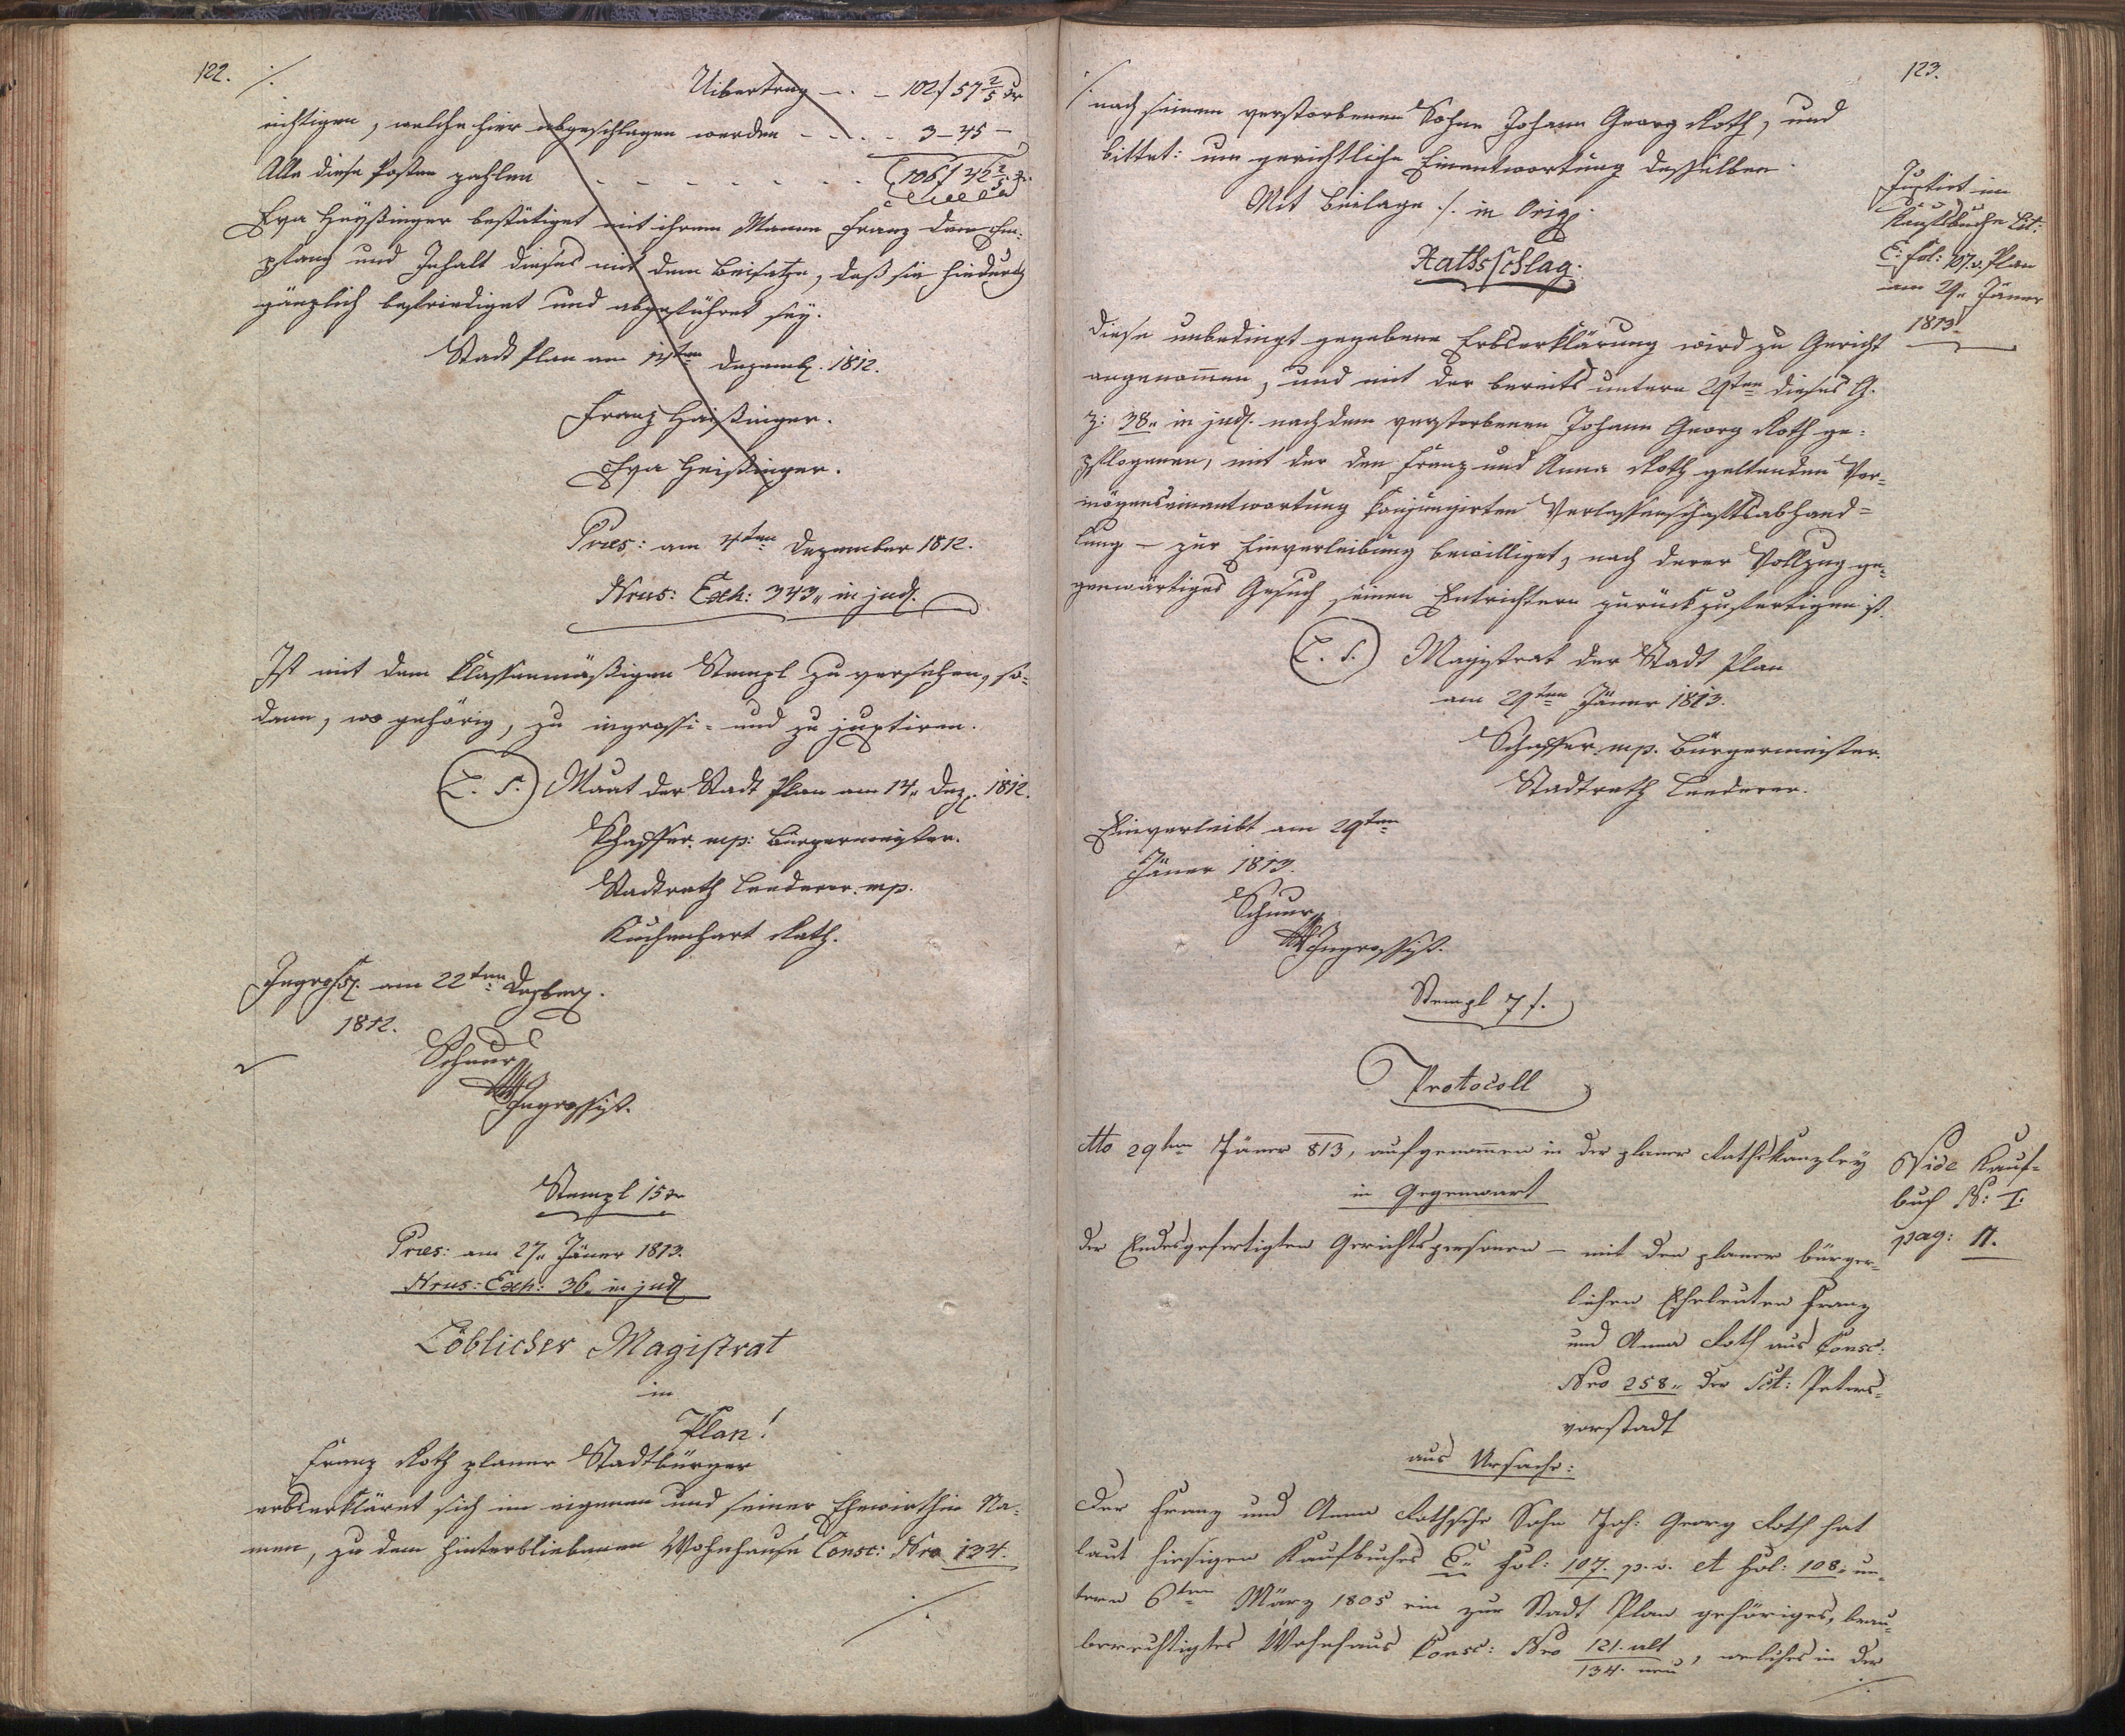 122. ·/.
Uibertrag — . — 102 f 57 2/5 xr
richtigen, welche hier abgeschlagen werden — . . . 3 — 45 —
Alle diese Posten zahlen — — — — — 106 f 42 2/5 xr.
Eva Heyßinger bestätiget mit ihrem Manne Franz den Em-
pfang und Inhalt dieses mit dem Beisatze, daß sie hiedurch
gänzlich befriediget und abgeführet sey.
Stadt Plan am ten Dezemb. 1812.
Franz Haißinger.
Eva Heißinger.
Præs: am 4ten Dezember 1812.
Nrus: Exh: 343„ in jud.
Ist mit dem klassenmäßigen Stempl zu versehen, so-
dann, wo gehörig, zu ingrossi- und zu juxtiren.
(L. S.) Maat der Stadt Plan am 14„ Dez. 1812.
Schaffer mp: Bürgermeister.
Stadtrath Lenderer mp.
Kuchenhart Rath.
Ingross. am 22ten Dezber.
1812.
Schnurr
Ingrossist.
Stempl 15 xr
Præs: am 27„ Jäner 1813.
Nrus: Exh: 36„ in jud.
Löblicher Magistrat
in
Plan!
Franz Roth planer Stadtbürger
erbserkläret sich im eigenen und seiner Ehewirthin Na-
men, zu dem hinterbliebenen Wohnhause Consc: Nro 134.
·/.
123.
·/. nach seinem verstorbenen Sohne Johann Georg Roth, und
bittet: um gerichtliche Einantwortung desselben.
Mit Beilage ·/. in Orig.
Rathsschlag.
Juxtirt im
Kaufsbuche Lit:
C. fol: 107. v. Plan
am 29„ Jäner
1813.
Diese unbedingt gegebene Erbserklärung wird zu Gericht
angenommen, und mit der bereits untern 29ten dieses G.
Z: 38„ in jud. nach dem verstorbenen Johann Georg Roth ge-
pflogenen, mit der den Franz und Anna Roth geltenden Ver-
mögenseinantwortung konjungirten Verlassenschaftsabhand-
lung — zur Einverleibung bewilliget, nach derer Vollzug ge-
genwärtiges Gesuch seinen Entrichtern zurückzufertigen ist.
(L. S.) Magistrat der Stadt Plan
am 29ten Jäner 1813.
Schaffer mp. Bürgermeister.
Stadtrath Lenderer.
Einverleibt am 29ten
Jäner 1813.
Schnurr
Ingrossist.
Stempl 7 f.
Protocoll
dto 29ten Jäner 813, aufgenommen in der planer Rathskanzley
in Gegenwart
Vide Kauf-
buch N: I.
pag: 11.
der Endesgefertigten Gerichtspersonen — mit den planer bürger-
lichen Eheleuten Franz
und Anna Roth aus Consc:
Nro 258„ der Sct: Peters-
vorstadt
aus Ursache:
Der Franz und Anna Rothische Sohn Joh: Georg Roth hat
laut hiesigen Kaufbuches C„ fol: 107. p. v. et fol: 108„ un-
tern 6ten März 1805 ein zur Stadt Plan gehöriges, brau-
berechtigtes Wohnhaus Consc: Nro 121. alt / 134. neu, welches in der
·/.